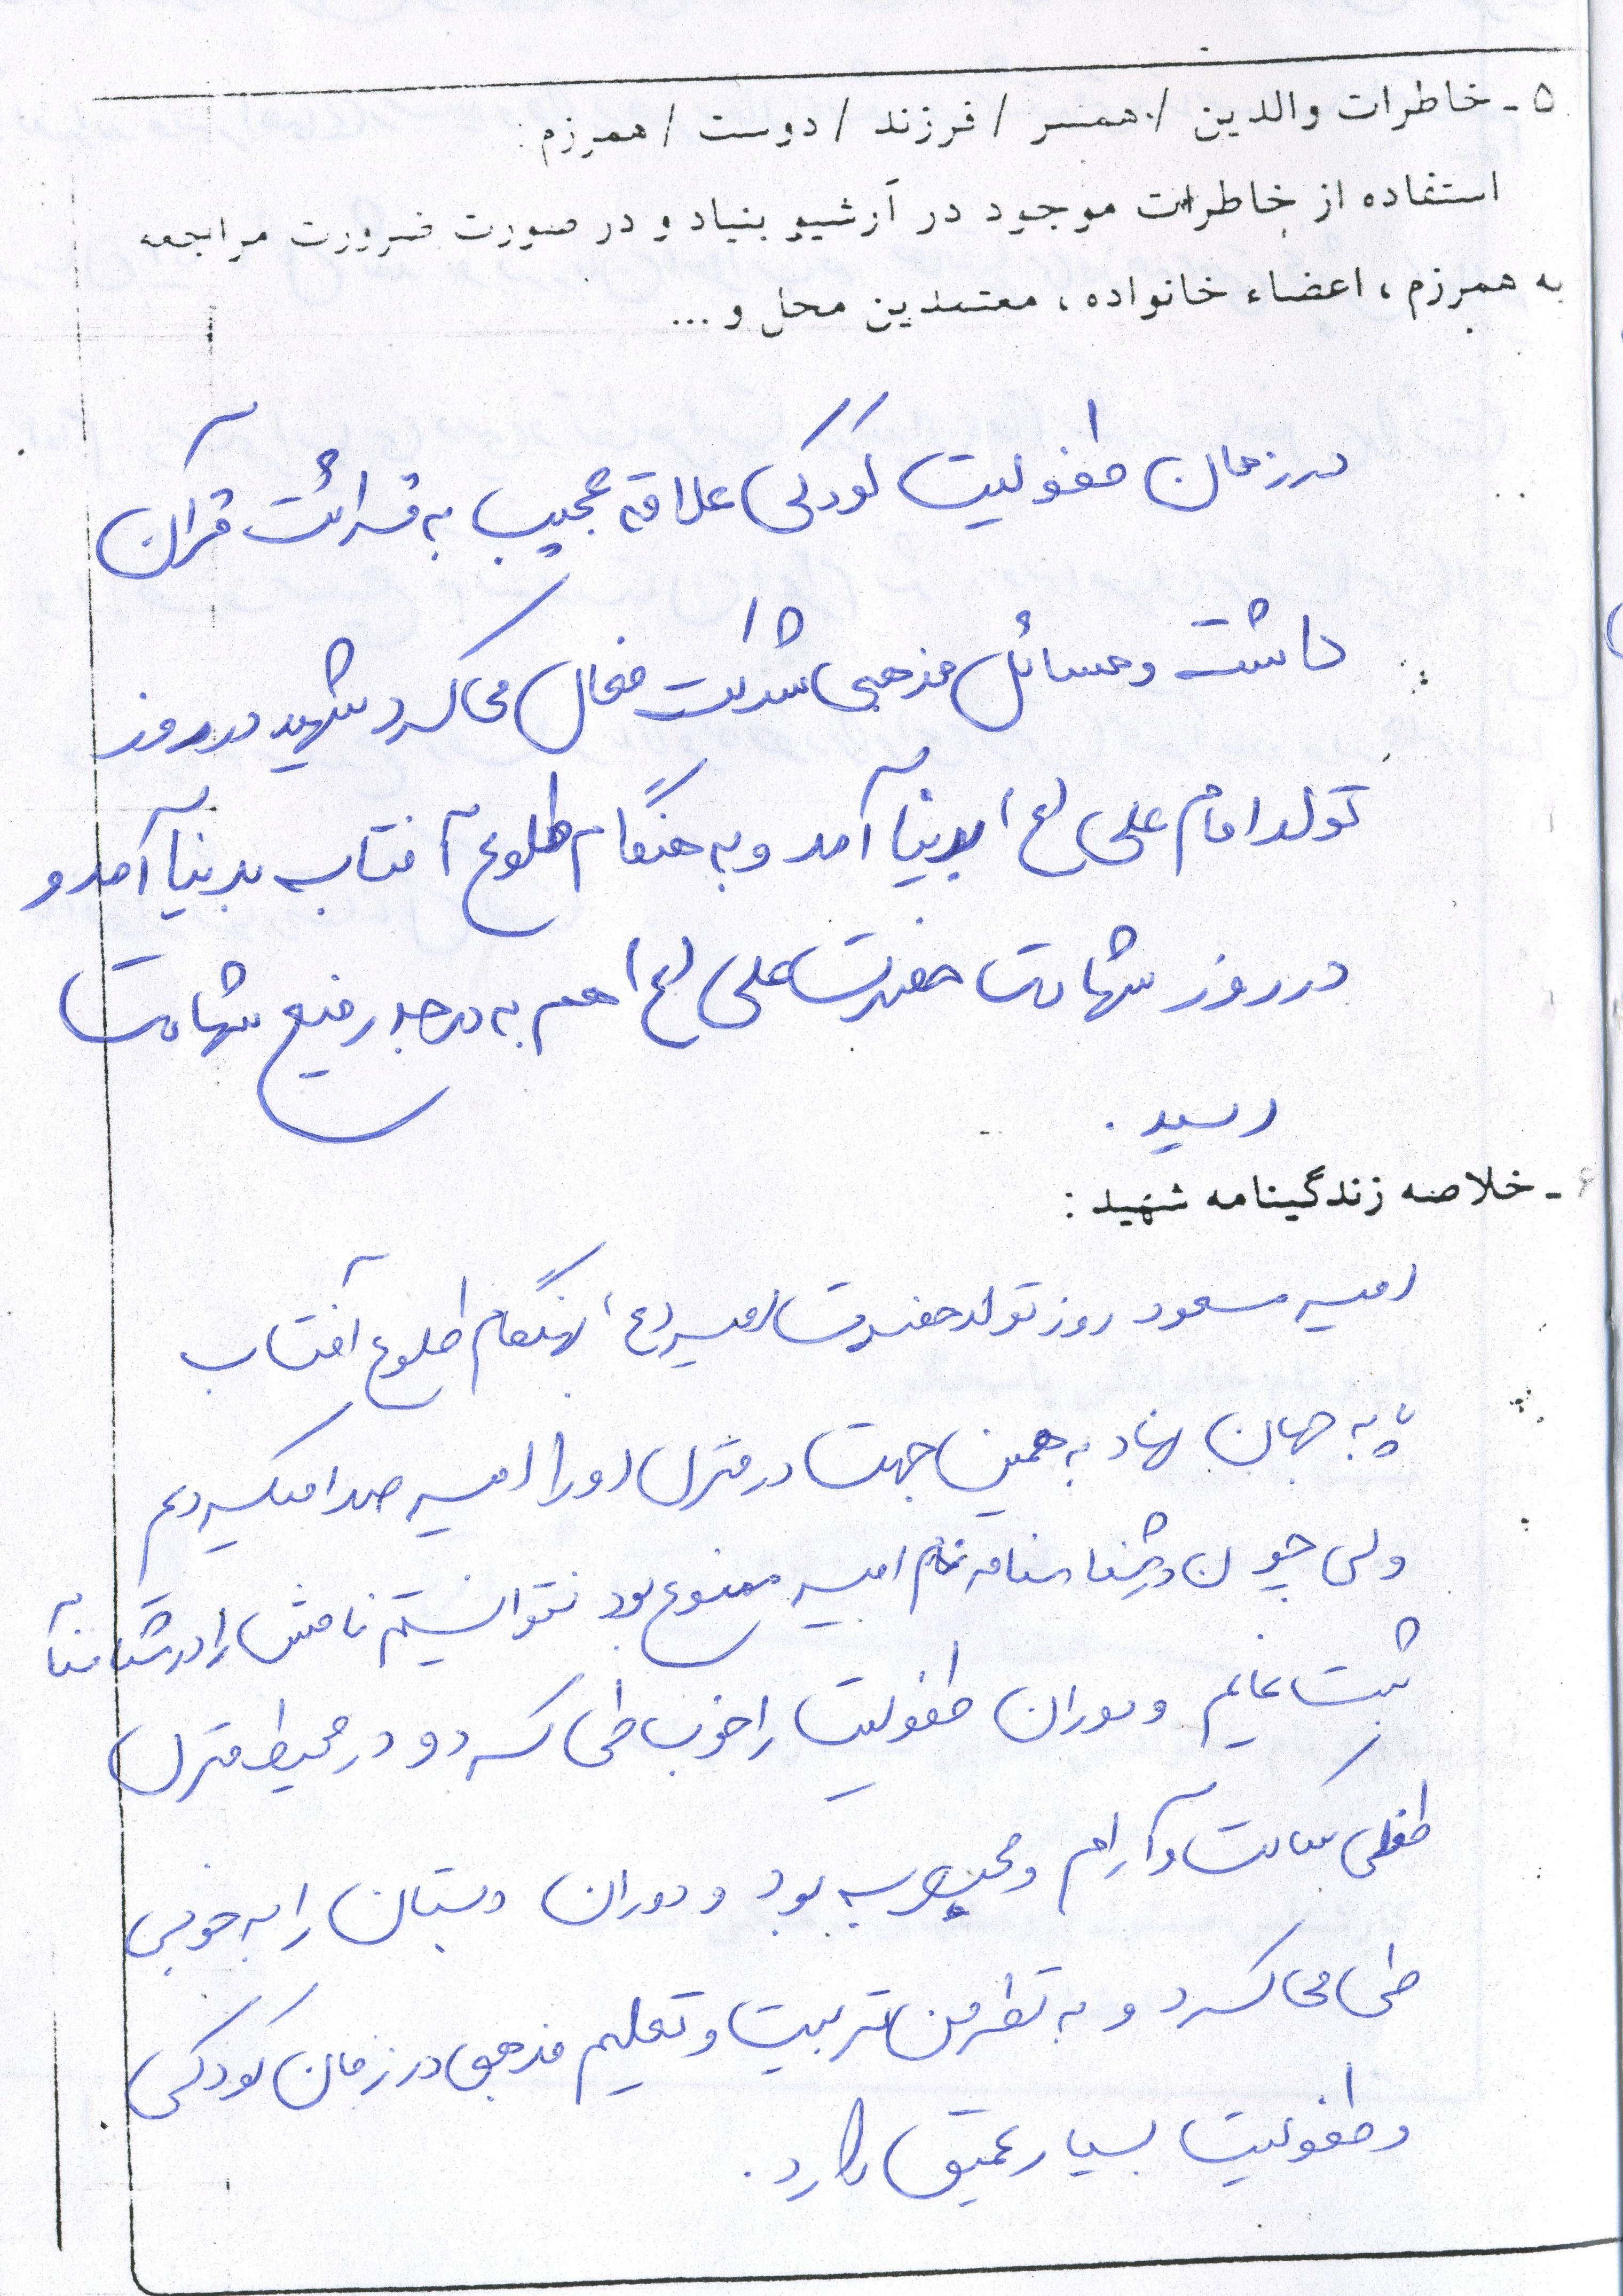 ۵ - خاطرات والدین / همسر / فرزند / دوست / همرزم :
استفاده از خاطرات موجود در آرشیو بنیاد و در صورت ضرورت مراجعه
به همرزم ، اعضاء خانواده ، معتمدین محل و ...
در زمان طفولیت کودکی علاقه عجیب به قرائت قرآن
داشت و مسائل مذهبی شرکت فعال می کرد شهید در روز
تولد امام علی (ع) بدنیا آمد و به هنگام طلوع آفتاب بدنیا آمد و
در روز شهادت حضرت علی (ع) هم به درجه رفیع شهادت
رسید .
۶ - خلاصه زندگینامه شهید :
امیر مسعود روز تولد حضرت امیر (ع) بهنگام طلوع آفتاب
پا به جهان نهاد به همین جهت در منزل او را امیر صدا میکردیم
ولی چون در شناسنامه نام امیر ممنوع بود نتوانستیم نامش را در شناسنامه
ثبت نمایم و دوران طفولیت را خوب طی کرد و در محیط منزل
طفلی ساکت و آرام و بود و دوران دبستان را به خوبی
طی می کرد و به نظر من تربیت و تعلیم مذهبی در زمان کودکی
و طفولیت بسیار عمیق دارد .